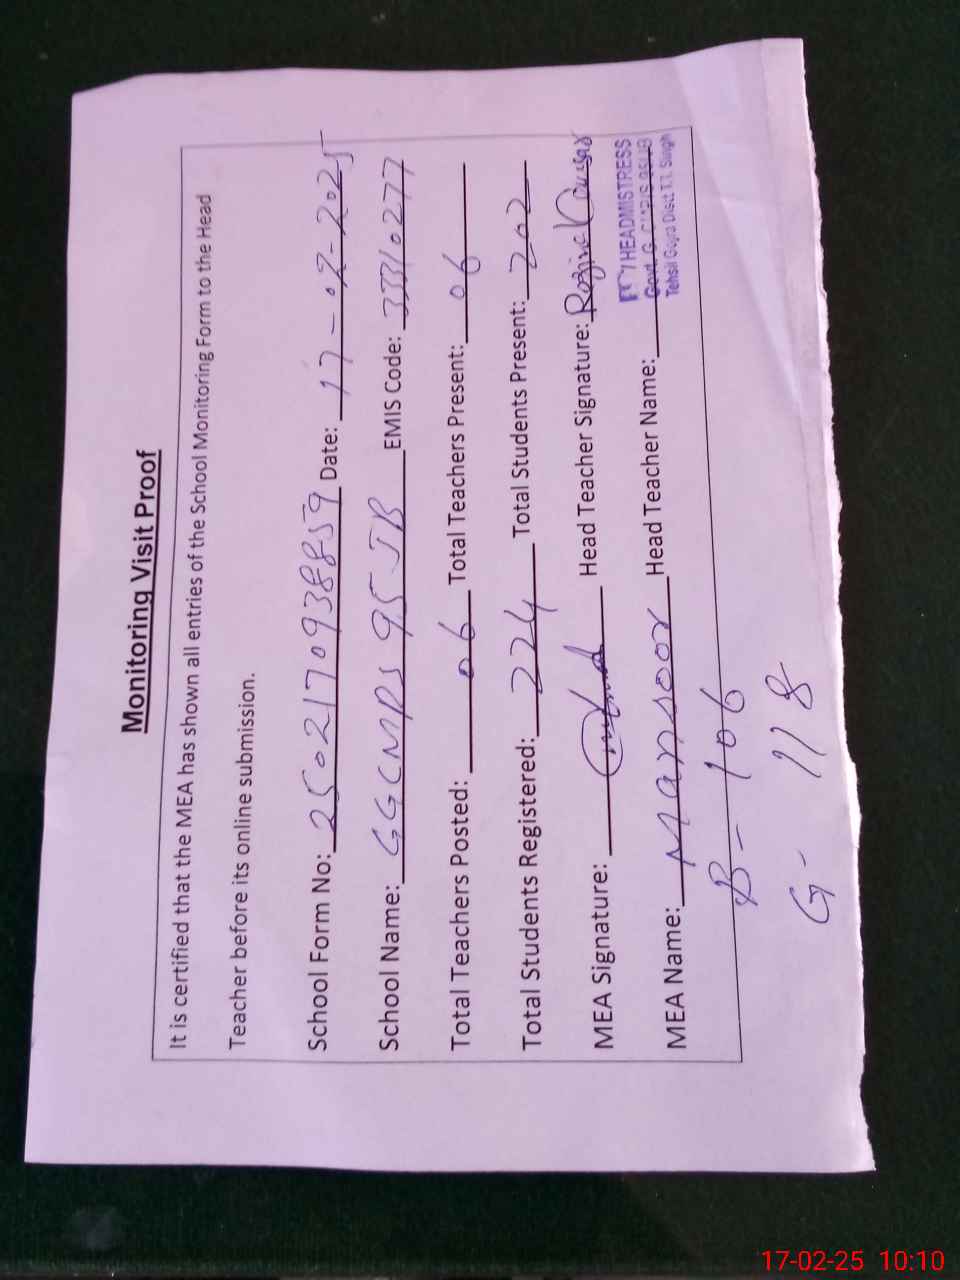 Monitoring Visit Proof
It is certified that the MEA has shown all entries of the School Monitoring Form to the Head
Teacher before its online submission.
School Form No: 2502170938859 Date: 17-02-2025
School Name: GGCMPS 95 JB EMIS Code: 33310277
Total Teachers Posted: 06 Total Teachers Present: 06
Total Students Registered: 224 Total Students Present: 202
MEA Signature: Head Teacher Signature: Rozina Kousar
MEA Name: Mansoor Head Teacher Name:
HEADMISTRESS
Govt. G.
Tehsil Gojra Disst T.T. Singh
B- 106
G- 118
17-02-25 10:10